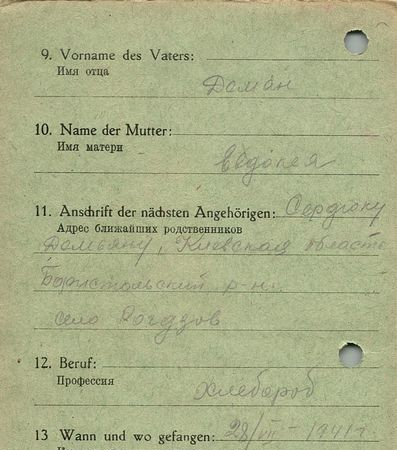 9. Vorname des Vaters:
Имя отца
Демян
10. Name der Mutter:
Имя матери
Евдокея
11. Anschrift der nächsten Angehörigen: Сердюку
Адрес ближайших родственников
Демьяну, Киевская область
Бориспольский р-н
село Рогозов
12. Beruf:
Профессия
Хлебороб
13 Wann und wo gefangen: 28/VII - 1941